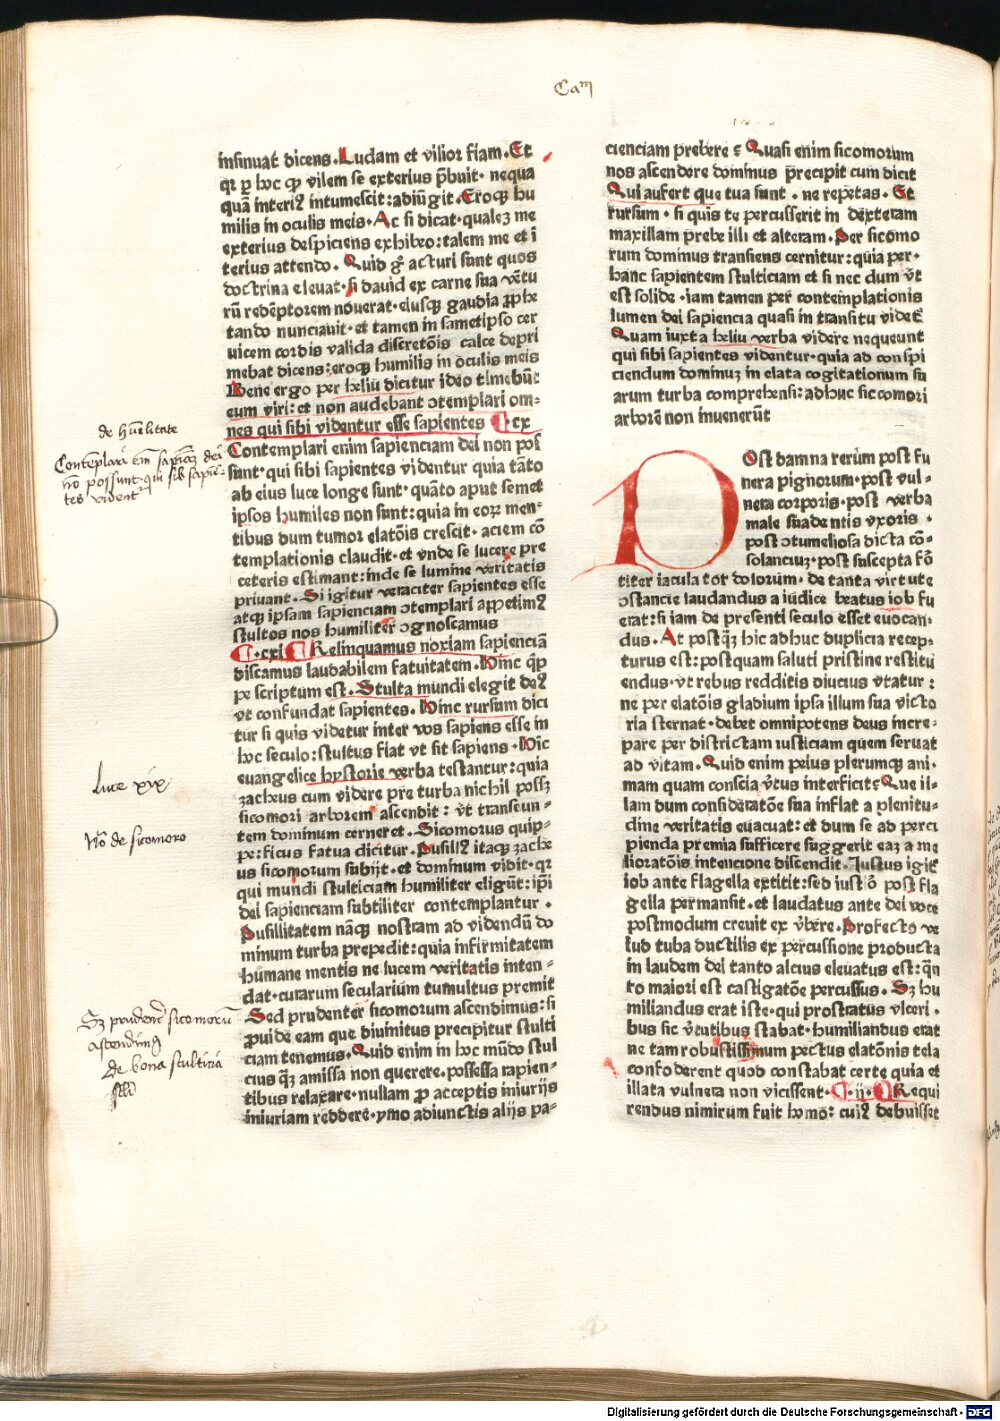 Cam
insinuat dicens. Ludam et vilior fiam. Et
qꝛ ꝑ hoc ꝙ vilem se exterius p̄buit. nequa
quā interiꝰ intumescit: adiūgit. Eroqꝫ hu
milis in oculis meis. Ac si dicat. qualeꝫ me
exterius despiciens exhibeo: talem me et ī
terius attendo. Quid gͦ acturi sunt quos
doctrina eleuat. si dauid ex carne sua vētu
rū redēptorem nouerat. eiusqꝫ gaudia ꝓphe
tando nunciauit. et tamen in sametipso cer
uicem cordis valida discretōis calce depri
mebat dicens: eroqꝫ humilis in oculis meis
Bene ergo per heliu dicitur ideo timebūt
eum viri: et non audebant ↄtemplari om⸗
nes qui sibi videntur esse sapientes ¶.cx
Contemplari enim sapienciam dei non pos
sunt. qui sibi sapientes videntur quia tāto
ab eius luce longe sunt. quāto aput semet
ipsos humiles non sunt: quia in eoꝝ men⸗
tibus dum tumor elatōis crescit. aciem cō
templationis claudit. et vnde se lucere pre
ceteris estimant: inde se lumine veritatis
priuant. Si igitur veraciter sapientes esse
atqꝫ ipsam sapienciam ↄtemplari appetimꝰ
stultos nos humiliter ↄgnoscamus
¶.cxi ¶ Relinquamus noxiam sapienciā
discamus laudabilem fatuitatem. Hinc q̄p
pe scriptum est. Stulta mundi elegit deꝰ
vt confundat sapientes. Hinc rursum dici
tur si quis videtur inter vos sapiens esse in
hoc seculo: stultus fiat vt sit sapiens. Hic
euangelice hystorie verba testantur: quia
zacheus cum videre pre turba nichil possꝫ
siccomori arborem ascendit: vt transeun⸗
tem dominum cerneret. Sicomorus quip⸗
pe: ficus fatua dicitur. Pusillꝰ itaqꝫ zache
us sicomorum subijt. et dominum vidit. qꝛ
qui mundi stulticiam humiliter eligūt: ip̄i
dei sapienciam subtiliter contemplantur.
Pusillitatem nāqꝫ nostram ad videndū do
minum turba prepedit: quia infirmitatem
humane mentis ne lucem veritatis inten⸗
dat. curarum secularium tumultus premit
Sed prudenter sicomorum ascendimus: si
ꝓuide eam que diuinitus precipitur stulti
ciam tenemus. Quid enim in hoc mūdo stul
cius qꝫ amissa non querere. possessa rapien⸗
tibus relaxare. nullam ꝓ acceptis iniurijs
iniuriam reddere. ymo adiunctis alijs pa⸗
de humilitate
Contemplari em̄ sapiam dei
nō possunt qui sibi sapiē⸗
tes vident
luce xix
Nō de sicomoro
Sꝫ prudent sicomorū
ascendimꝰ
de bona stulticia
cienciam prebere? Quasi enim sicomorum
nos ascendere dominus p̄recipit cum dicit
Qui aufert que tua sunt. ne repetas. Et
rursum. si quis te percusserit in dexteram
maxillam prebe illi et alteram. Per sicomo
rum dominus transiens cernitur: quia per⸗
hanc sapientem stulticiam et si nec dum vt
est solide. iam tamen per contemplationis
lumen dei sapiencia quasi in transitu videt̄
Quam iuxta heliu verba videre nequeunt
qui sibi sapientes videntur. quia ad conspi
ciendum dominuꝫ in elata cogitationum su
arum turba comprehensi: adhuc siccomori
arborē non inuenerūt
POst damna rerum post fu
nera pignorum. post vul⸗
nera corporis. post verba
male suadentis vxoris.
post ↄtumeliosa dicta cō⸗
solanciuꝫ. post suscepta fō
titer iacula tot dolorum. de tanta virtute
ↄstancie laudandus a iudice beatus iob fu
erat: si iam de presenti seculo esset euocan⸗
dus. At postqꝫ hic adhuc duplicia recep⸗
turus est: postquam saluti pristine restitu
endus. vt rebus redditis diucius vtatur:
ne per elatōis gladium ipsa illum sua victo
ria sternat. debet omnipotens deus incre⸗
pare per districtam iusticiam quem seruat
ad vitam. Quid enim peius plerumqꝫ ani⸗
mam quam conscia v̄tus interficit? Que il⸗
lam dum consideratōe sua inflat a plenitu⸗
dine veritatis euacuat: et dum se ad perci
pienda premia sufficere suggerit eaꝫ a me
lioratōis intencione discendit. Iustus igit̄
iob ante flagella extitit: sed iustiō post fla
gella permansit. et laudatus ante dei voce
postmodum creuit ex v̄bere. Profecto ve
lud tuba ductilis ex percussione producta
in laudem dei tanto alcius eleuatus est: q̄n
to maiori est castigatōe percussus. Sꝫ hu
miliandus erat iste. qui prostratus vlceri⸗
bus sic v̄tutibus stabat. humiliandus erat
ne tam robustissimum pectus elatōnis tela
confoderent quod constabat certe quia et
illata vulnera non vicissent. ¶.ij. ¶ Requi
rendus nimirum fuit homo: cuiꝰ debuisset
Digitalisierung gefördert durch die Deutsche Forschungsgemeinschaft - DFG